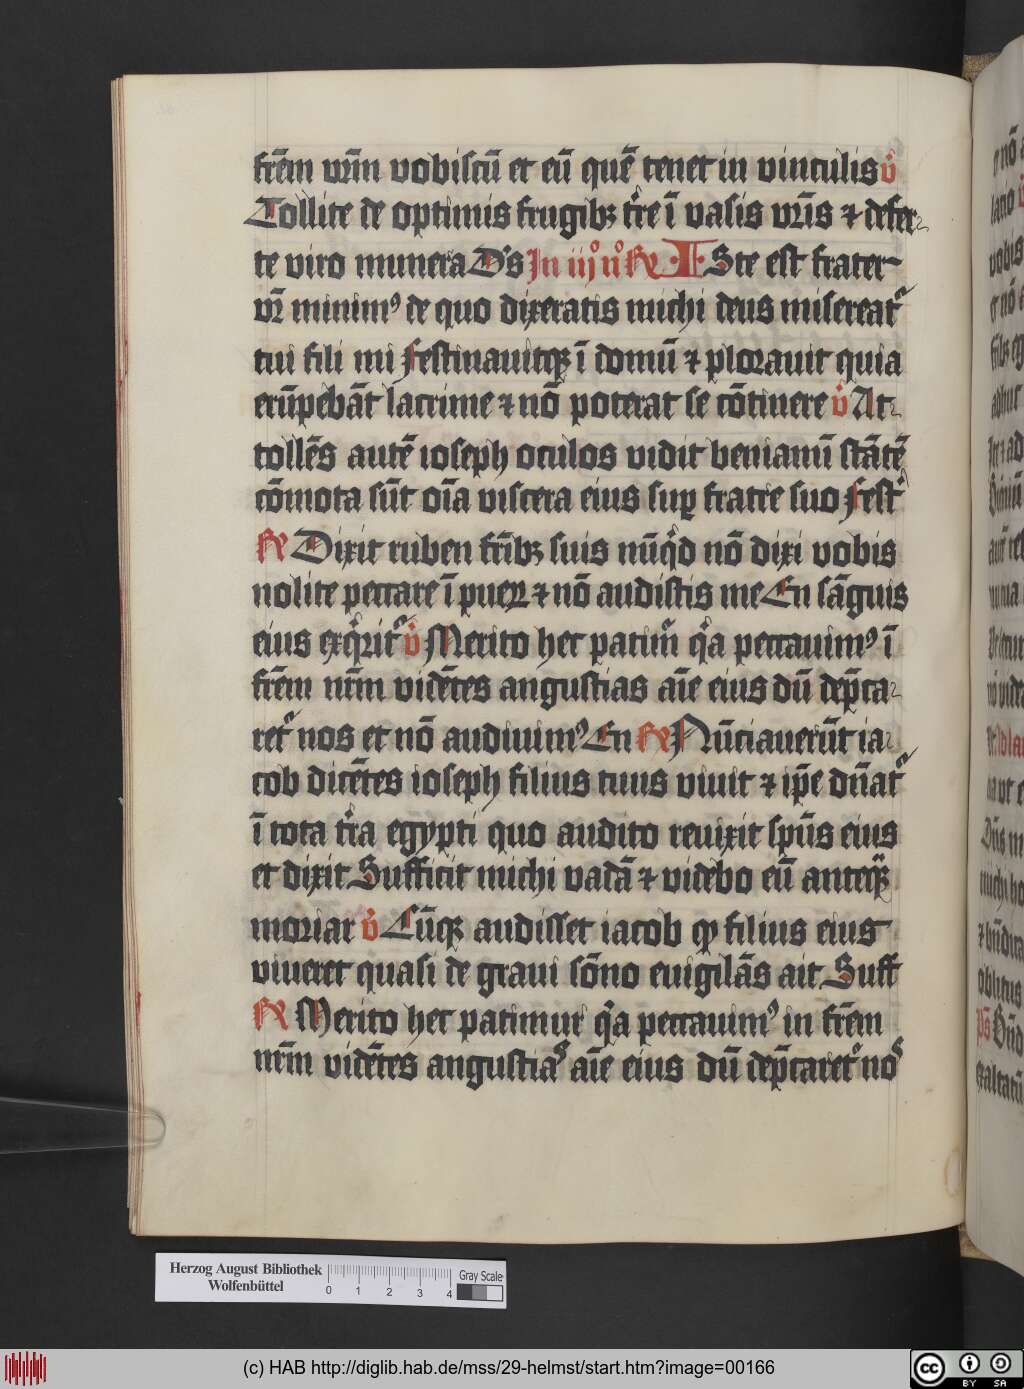 frēm vr̄m vobiscū et eū quē tenet in vinculis v̇
Tollite de optimis frugibꝫ t̄re ī vasis vr̄is ⁊ defer-
te viro munera D's In iijͦ nͦ R̸ ISte est frater
vr̄ minimꝰ de quo dixeratis michi deus misereat᷑
tui fili mi festinauitqꝫ ī domū ⁊ plorauit quia
erūpebāt lacrime ⁊ nō poterat se cōtinere v̇ At-
tollēs autē ioseph oculos vidit beniamī stātē
cōmota sūt oīa viscera eius suꝑ fratre suo fest᷑
R̸ Dixit ruben fr̄ibꝫ suis nūqͥd nō dixi vobis
nolite peccare ī pueꝝ ⁊ nō audistis me En sāguis
eius exqͥrit᷑ v̇ Merito hec patim᷑ qͣa peccauimꝰ ī
frēm nr̄m vidētes angustias aīe eius dū dep̄ca-
ret᷑ nos et nō audiuimꝰ En R̸ Nūciauerūt ia-
cob dicētes ioseph filius tuus viuit ⁊ ip̄e dn̄at᷑
ī tota t̄ra egypti quo audito reuixit sp̄us eius
et dixit Sufficit michi vadā ⁊ videbo eū anteqͣꝫ
moriar v̇ Cūqꝫ audisset iacob ꝙ filius eius
viueret quasi de graui sōno euigilās ait Suff
R̸ Merito hec patimur qͣa peccauimꝰ in frēm
nr̄m vidētes angustiaˢ aīe eius dū dep̄caret᷑ noˢ
Herzog August Bibliothek
Wolfenbüttel
0 1 2 3 4
Gray Scale
(c) HAB http://diglib.hab.de/mss/29-helmst/start.htm?image=00166
cc BY SA